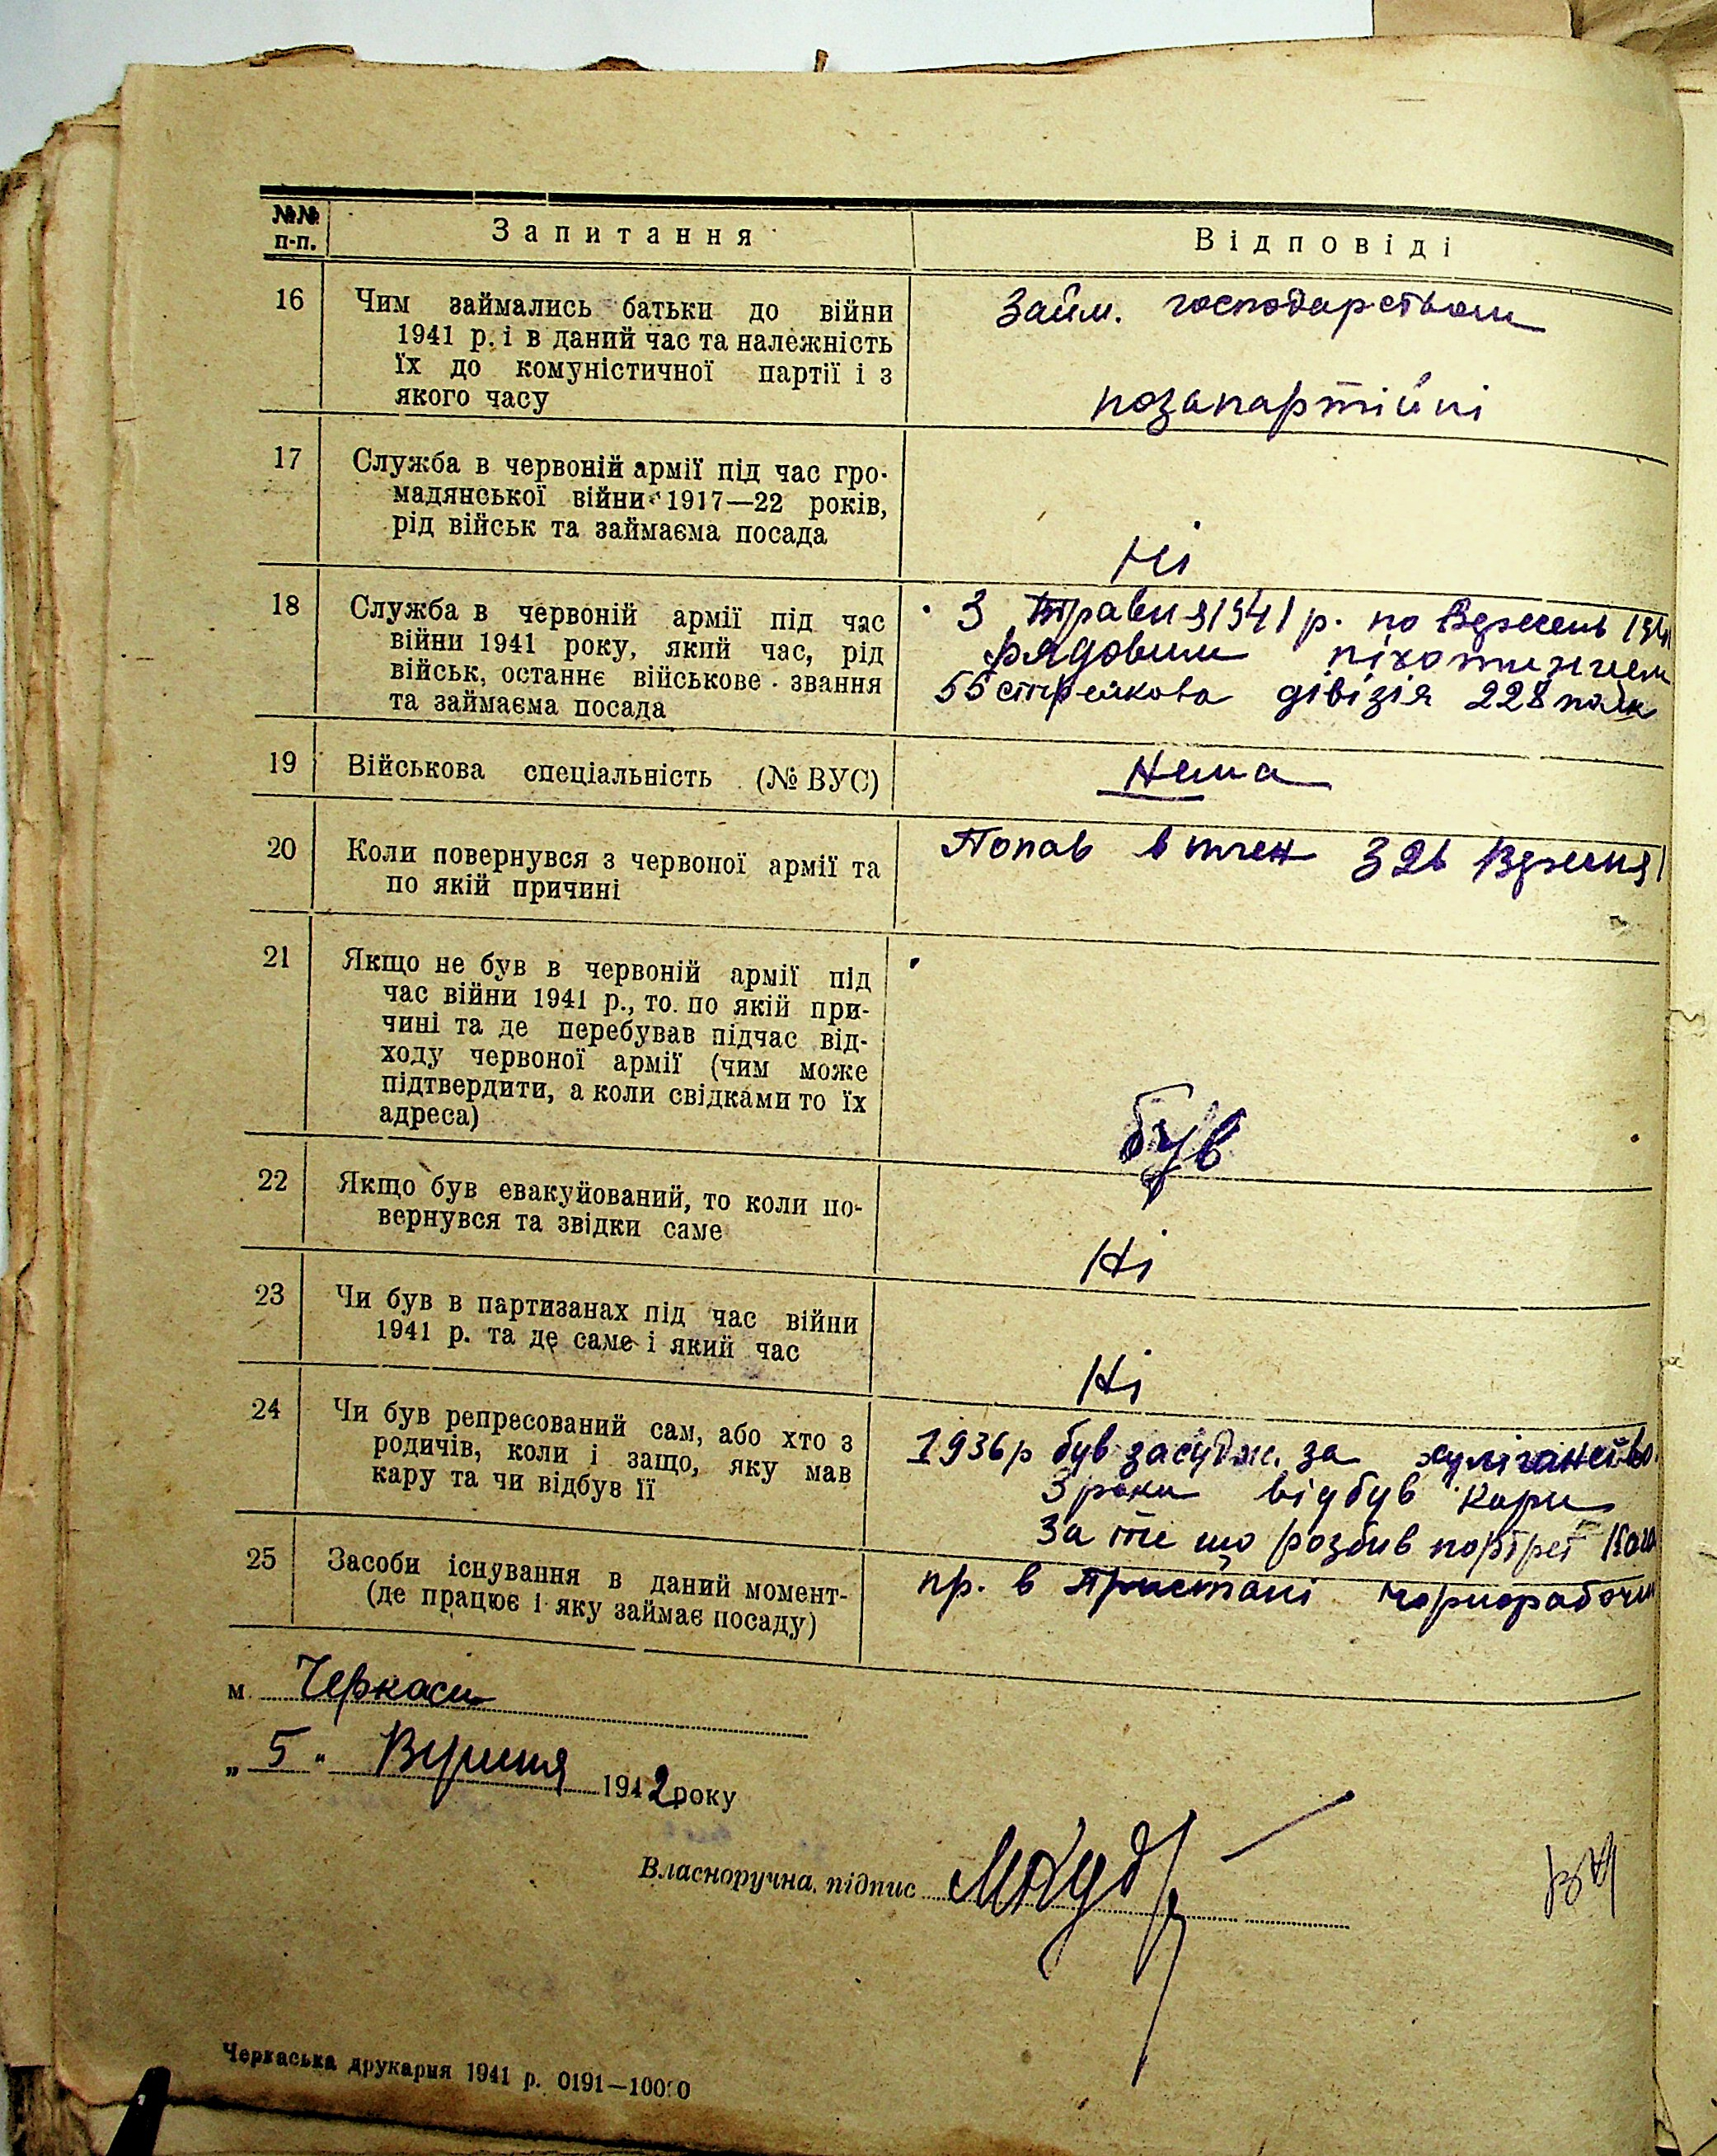 №№ п-п.
Запитання
Відповіді
16
Чим займались батьки до війни
1941 р. і в даний час та належність
їх до комуністичної партії і з
якого часу
Займ. господарством
позапартійні
17
Служба в червоній армії під час гро-
мадянської війни 1917—22 років,
рід військ та займаєма посада
Ні
18
Служба в червоній армії під час
війни 1941 року, який час, рід
військ, останнє військове звання
та займаєма посада
З Травня 1941 р. по Вересень 194
рядовим піхотинцем
55 стрелкова дівізія 228 полк
19
Військова спеціальність (№ ВУС)
Нема
20
Коли повернувся з червоної армії та
по якій причині
Попав в плен
21
Якщо не був в червоній армії під
час війни 1941 р., то по якій при-
чині та де перебував підчас від-
ходу червоної армії (чим може
підтвердити, а коли свідками то їх
адреса)
був
22
Якщо був евакуйований, то коли по-
вернувся та звідки саме
Ні
23
Чи був в партизанах під час війни
1941 р. та де саме і який час
Ні
24
Чи був репресований сам, або хто з
родичів, коли і защо, яку мав
кару та чи відбув її
1936р був засудж. за хуліганство.
3 роки відбув кари
За те що розбив портрет
25
Засоби існування в даний момент-
(де працює і яку займає посаду)
пр. в Пристані чорнорабочи
м. Черкаси
„ 5 " Вересня 1942 року
Власноручна підпис
Черкаська друкарня 1941 р. 0191—10000